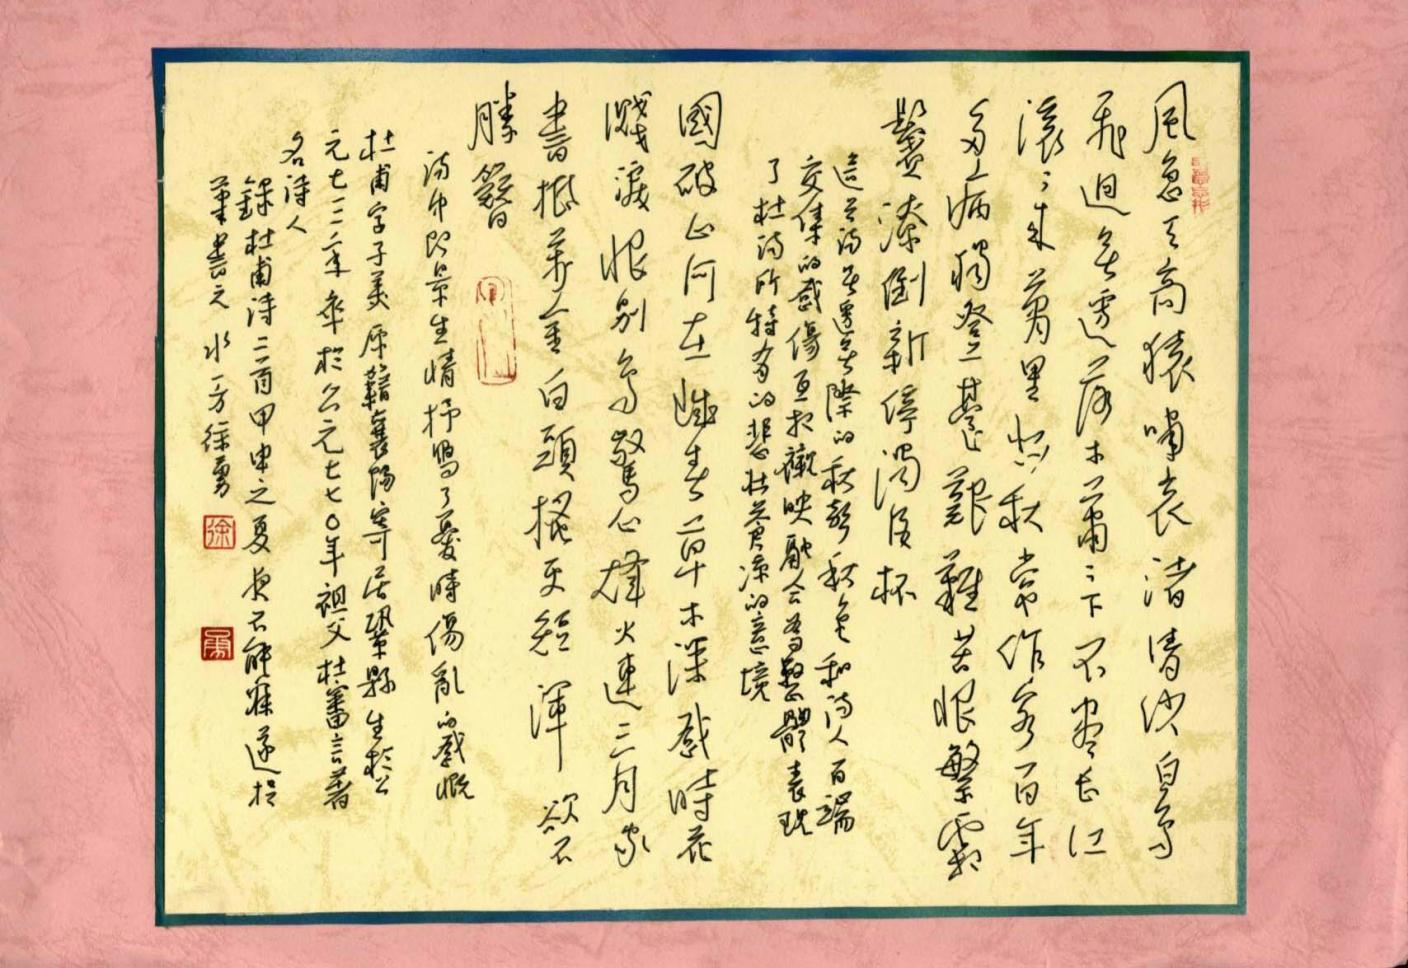 風急天高猿嘯哀渚清沙白鳥
飛迴無邊落木蕭〻下不盡長江
滾〻來萬里悲秋常作客百年
多病獨登臺艱難苦恨繁霜
鬢潦倒新停濁酒杯
這首詩無邊無際的秋聲秋色和詩人百端
交集的感傷互相襯映融合為整體表現
了杜詩所特有的悲壯蒼涼的意境
國破山河在城春草木深感時花
濺淚恨別鳥驚心烽火連三月家
書抵萬金白頭搔更短渾欲不
勝簪
詩中即景生情抒寫了憂時傷亂的感慨
杜甫字子美原籍襄陽寄居鞏縣生於公
元七一二年卒於公元七七〇年祖父杜審言著
名詩人
錄杜甫詩二首甲申之夏夜不能寐遂於
筆書之水一方徐勇
徐
勇